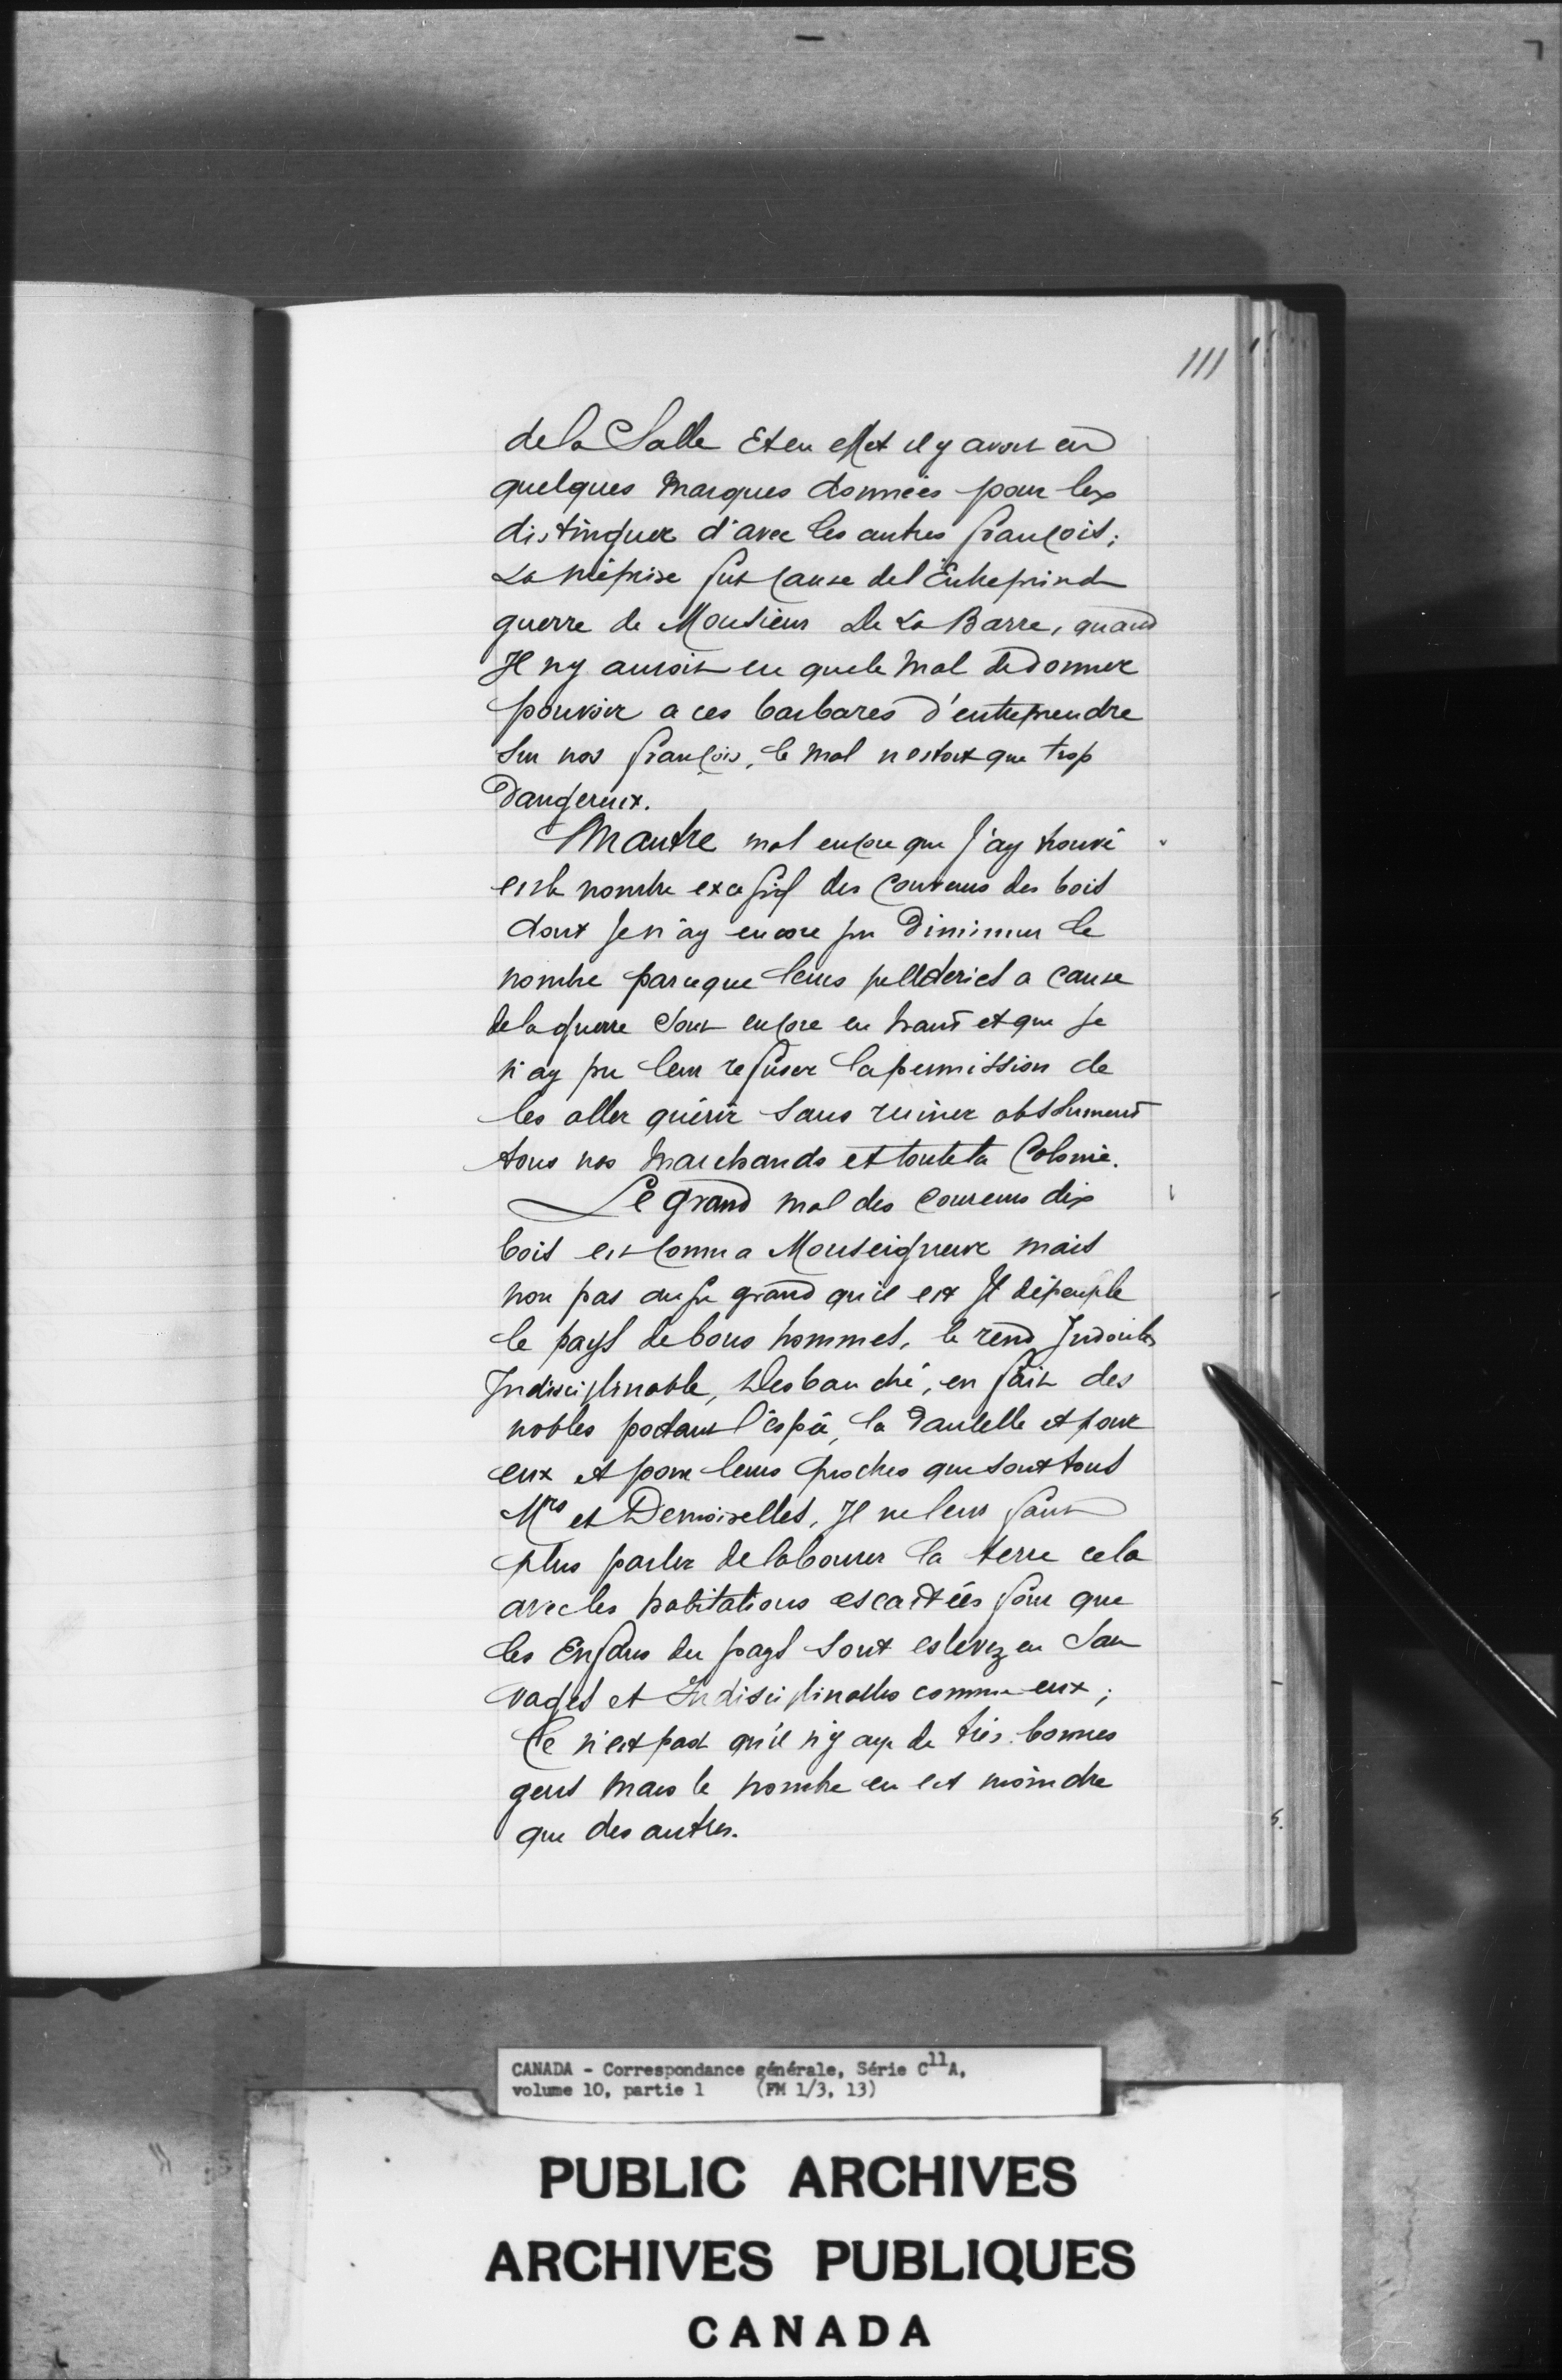 111
de la Salle Et en effet il y avoit eu
quelques marques données pour les
distinguer d'avec les autres françois;
La méprise fut cause de l'Entreprinde
guerre de Monsieur De La Barre, quand
Il ny auroit eu que le mal de donner
pouvoir a ces barbares d'entreprendre
Sur nos françois, le mal n estoit que trop
Dangereux.
Un autre mal encore que j'ay trouvé
est le nombre excessif des Coureurs des bois
dont Je n'ay encore pu Diminuer le
nombre parceque leurs pelleteries a cause
de la guerre sont encore en haut et que je
n'ay pu leur refuser la permission de
les aller quérir sans ruiner absolument
tous nos marchands et toute la Colonie.
Le grand mal des coureurs des
bois est connu a Monseigneur mais
non pas aussy grand qu'il est Il dépeuple
le pays de bons hommes, le rend Indociles
Indisciplinable, Desbauché, en fait des
nobles portant l'éspée, la Dantelle et pour
eux et pour leurs proches que sont tous
Mrs et Demoiselles, Il ne leur faut
plus parler de labourer la terre cela
avec les habitations escartées font que
les Enfans du pays sont eslevez en Sau
vages et Indisciplinables comme eux;
Ce n'est pas qu'il n'y aye de très bonnes
gens mais le nombre en est moindre
que des autres.
CANADA - Correspondance générale, Série C11A,
volume 10, partie 1 (FM 1/3, 13)
PUBLIC ARCHIVES
ARCHIVES PUBLIQUES
CANADA